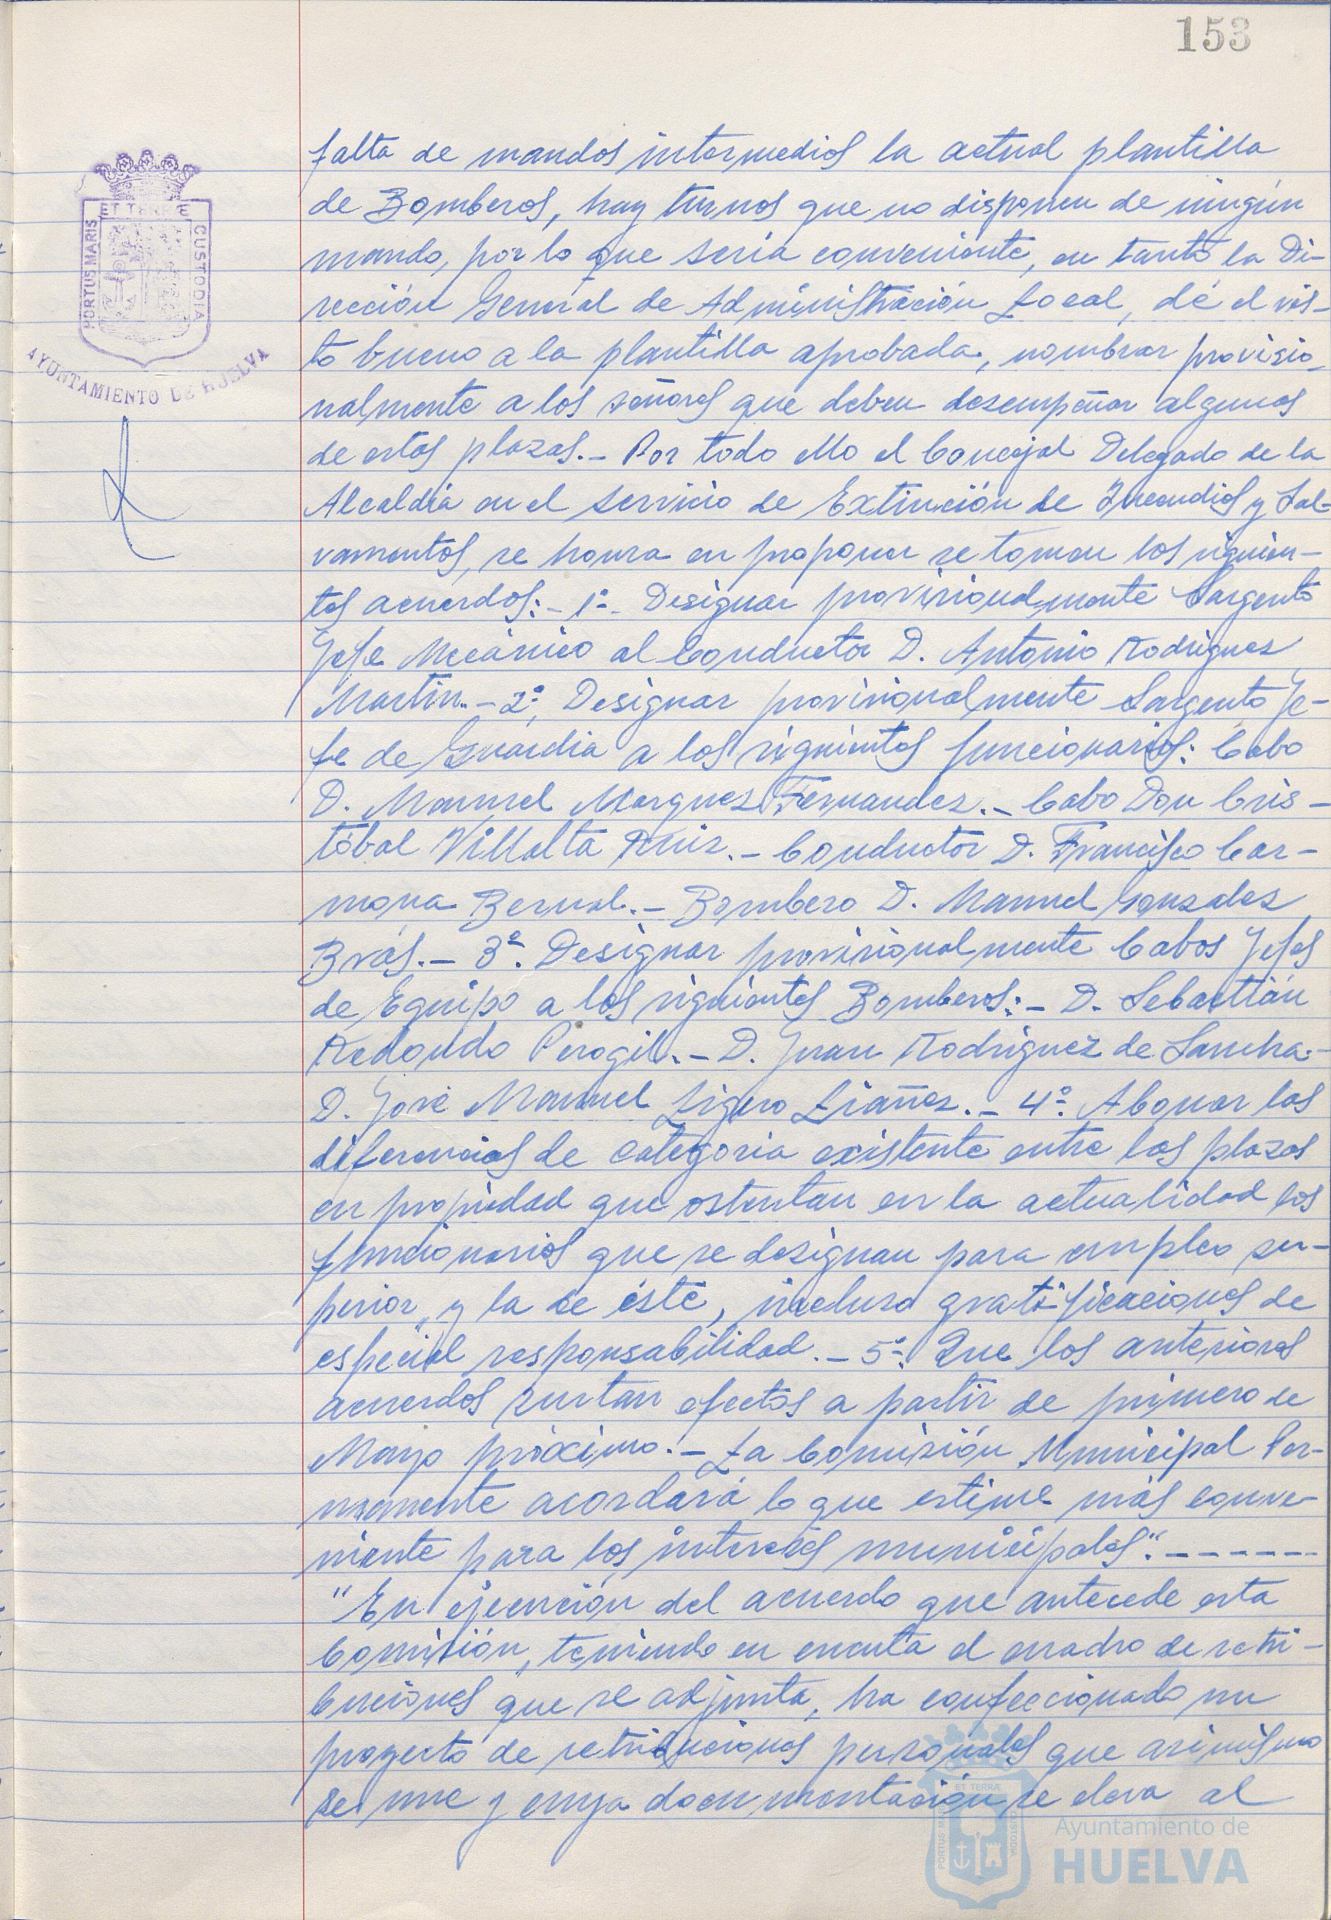 153
falta de mandos intermedios la actual plantilla
de Bomberos, hay turnos que no disponen de ningún
mando, por lo que seria conveniente, en tanto la Di-
rección General de Administración Local, dé el vis-
to bueno a la plantilla aprobada, nombrar provisio-
nalmente a los señores que deben desempeñar algunos
de estas plazas.- Por todo ello el Concejal Delegado de la
Alcaldía en el Servicio de Extinción de Incendios y Sal-
vamentos, se honra en proponer se tomen los siguien-
tes acuerdos:- 1º.- Designar provisionalmente Sargento
Jefe Mecánico al Conductor D. Antonio Rodriguez
Martin.- 2º, Designar provisionalmente Sargento Je-
fe de Guardia a los siguientes funcionarios: Cabo
D. Manuel Marquez Fernandez.- Cabo Don Cris-
tóbal Villalta Ruiz.- Conductor D. Francisco Car-
mona Bernal.- Bombero D. Manuel Gonzalez
Brás.- 3º. Designar provisionalmente Cabos Jefes
de Equipo a los siguientes Bomberos:- D. Sebastián
Redondo Perogil.- D. Juan Rodriguez de Sancha.-
D. José Manuel Ligero Liañez.- 4º. Abonar las
diferencias de categoria existente entre las plazas
en propiedad que ostentan en la actualidad los
funcionarios que se designan para empleo su-
perior, y la de éste, incluso gratificaciones de
especial responsabilidad.- 5º. Que los anteriores
acuerdos surtan efectos a partir de primero de
Mayo próximo.- La Comisión Municipal Per-
manente acordará lo que estime más conve-
niente para los intereses municipales".-------
"En ejecución del acuerdo que antecede esta
Comisión, teniendo en cuenta el cuadro de retri-
buciones que se adjunta, ha confeccionado un
proyecto de retribuciones personales que asimismo
se une y cuya documentación se eleva al
PORTUS MARIS ET TERRE CUSTODIA
AYUNTAMIENTO DE HUELVA
PORTUS MARIS ET TERRÆ CUSTODIA
Ayuntamiento de
HUELVA